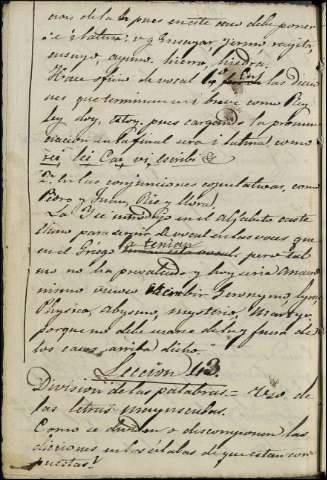 de la h pues en este caso debe poner
se i latina; v g Ensayar, yerno rayito,
ensayo, ayuno, hierro, hiedra.
Hace oficio de vocal 1º las diccio
nes que terminan en i breve como Rey
Ley, doy, Estoy, pues cargando la pronun
ciacion en la final será i latina, como
reí, leí Caí, vi, escribí &
2º En las conjunciones copulativas, como
Pedro y Juan, Rie y llora.
La Y se introdujo en el alfabeto caste
llano para servir de vocal en las voces que
en el Griego la tenian pero tal
uso no ha prevalecido y hoy seria Anacro
nismo escribir Geronymo, lyra
Physica, abysmo, mysterio, Martyr,
porque no debe usarse de la y fuera de
los casos arriba dichos.
Leccion 43
Division de las palabras. = Uso de
las letras mayusculas.
Como se dividen o descomponen las
dicciones en las sílabas de que estan com
puestas?